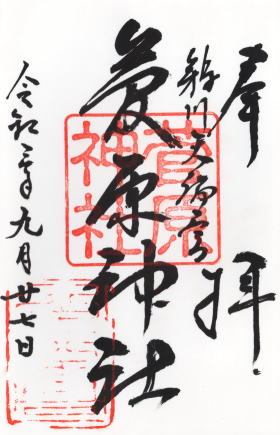 奉拝
川天満宮
菅原神社
菅原
神社
令和三年九月廿七日